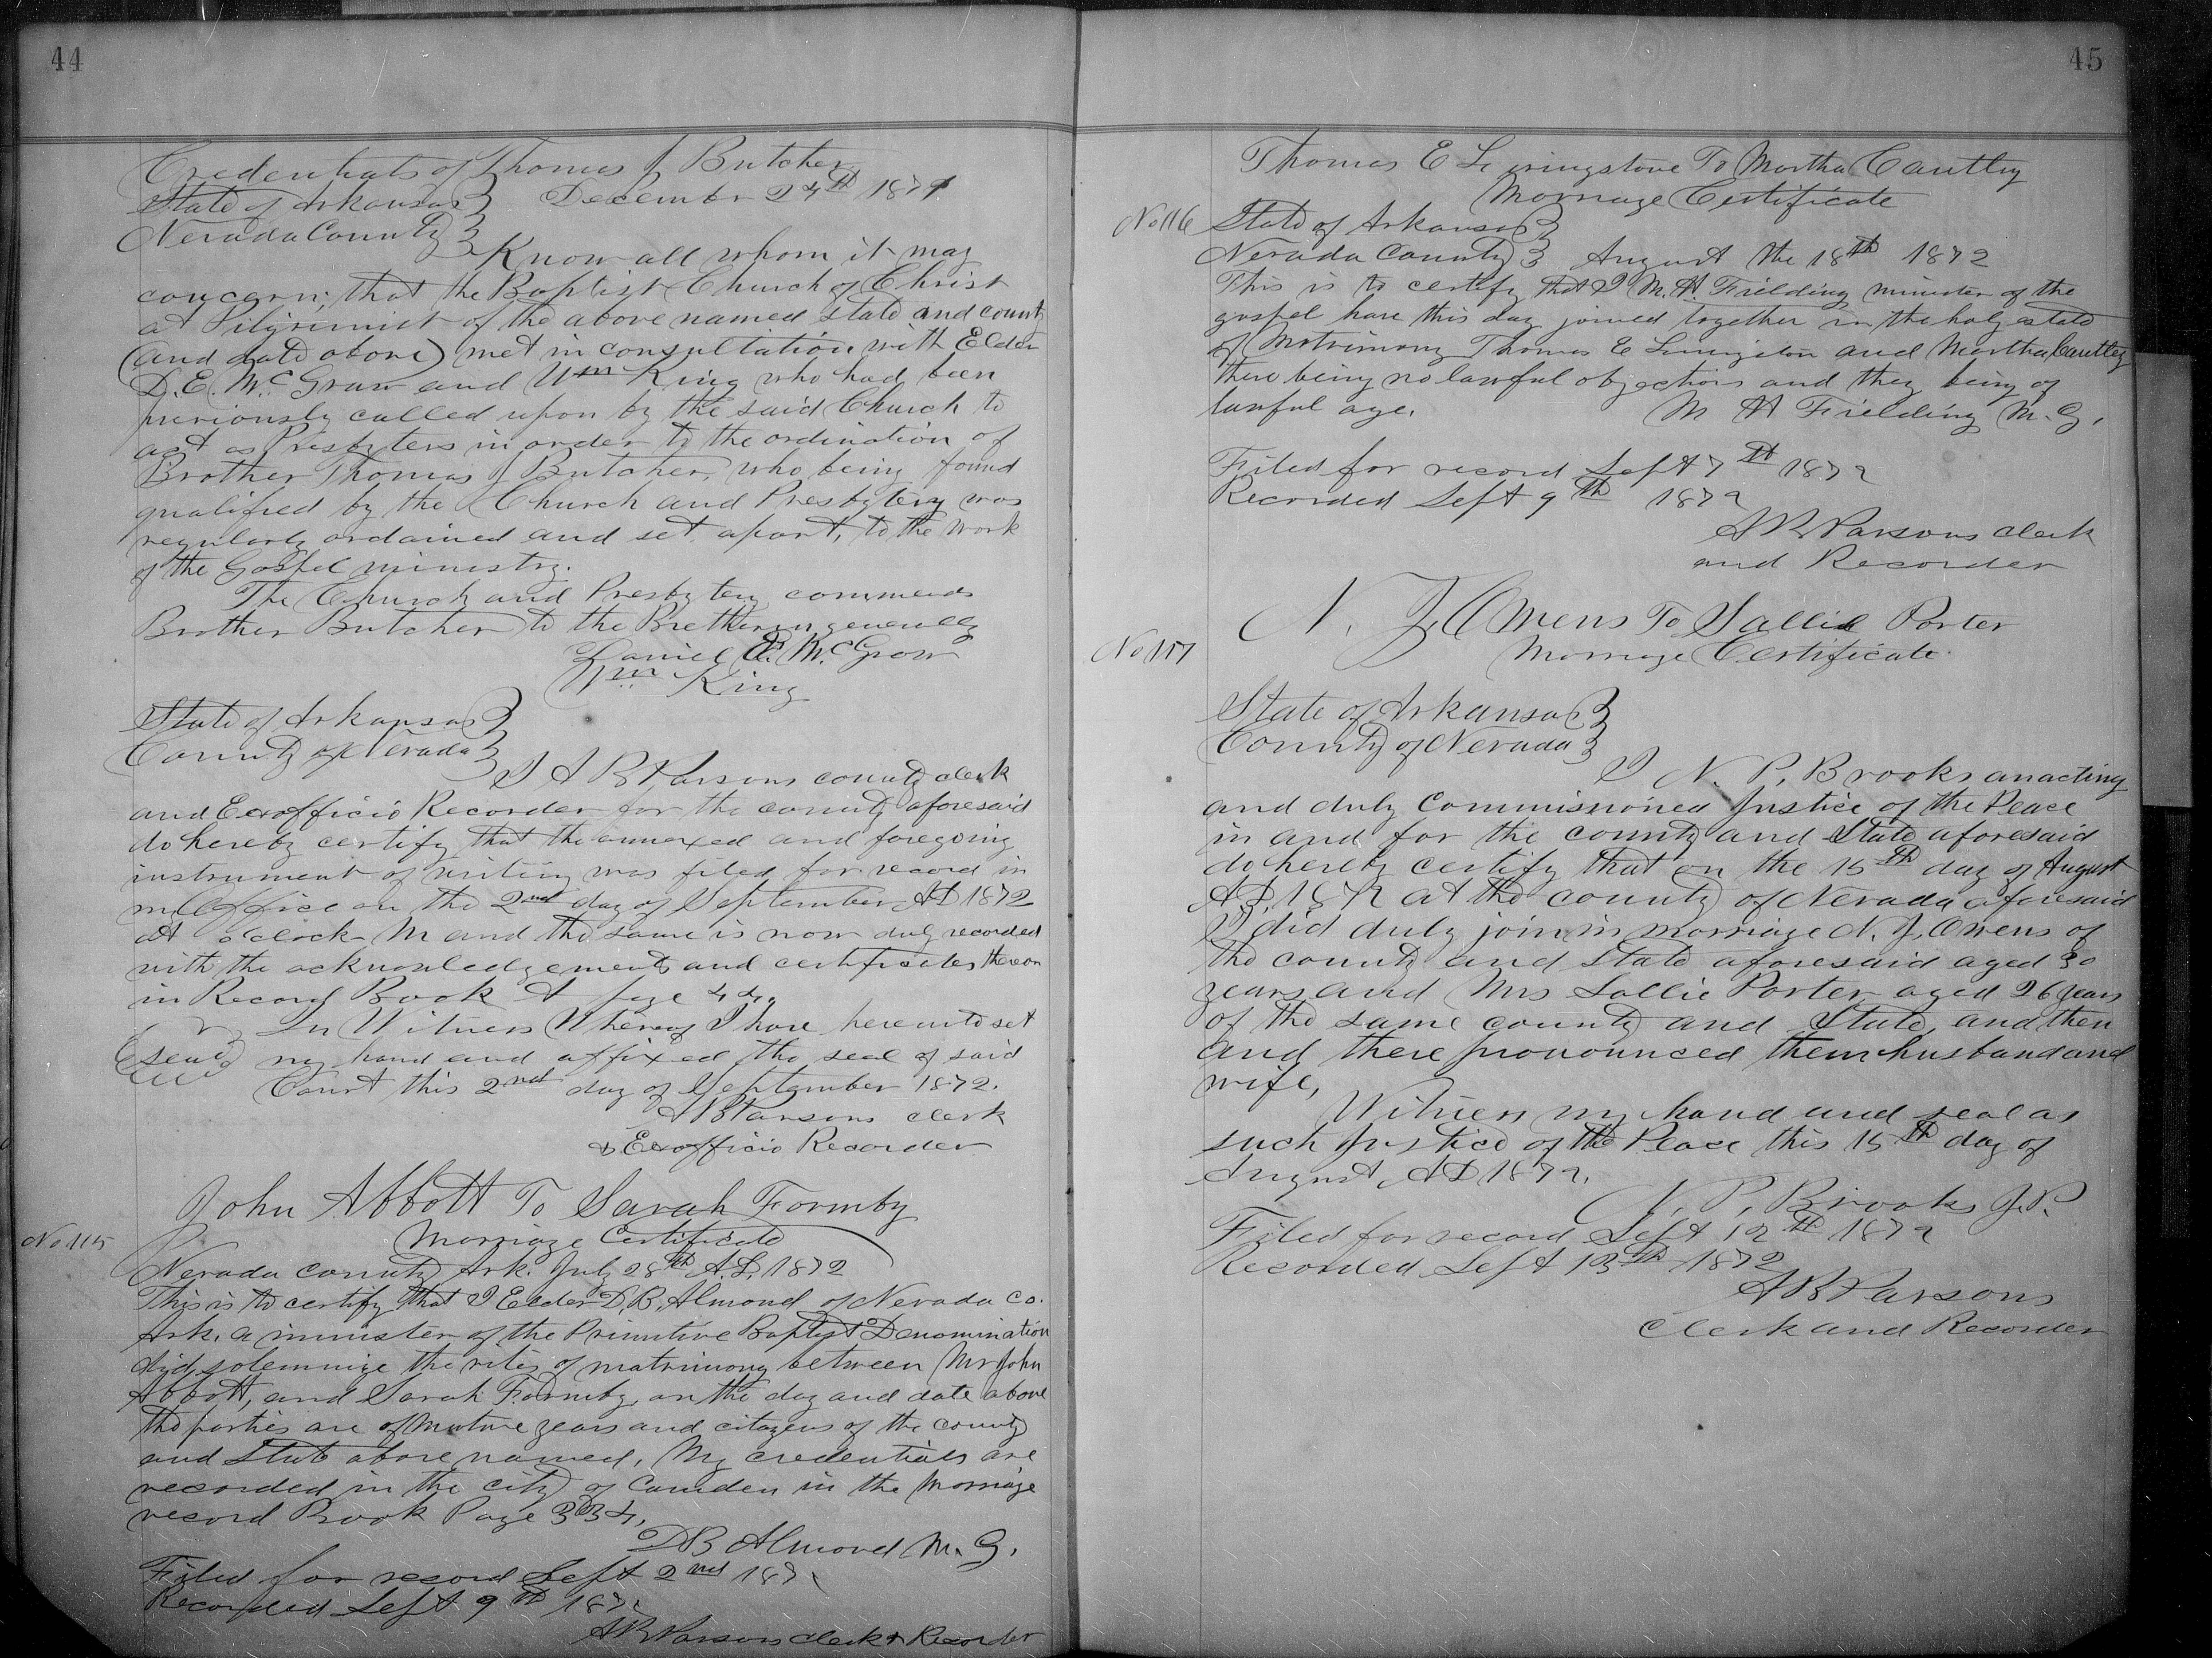 44
Credentials of Thomas J Butcher
State of Arkansas } December 24th 1871
Nevada County }
Know all whom it may
concern; that the Baptist Church of Christ
at Pilgrimist of the above named State and county
(and date above) met in consultation with Elder
D. E. McGraw and Wm King who had been
previously called upon by the said Church to
act as Presbyters in order to the ordination of
Brother Thomas J Butcher, who being found
qualified by the Church and Presbytery was
regularly ordained and set apart, to the work
of the Gospel ministry.
The Church and Presbytery commends
Brother Butcher to the Bretheren generally
Daniel E. McGraw
Wm King
State of Arkansas }
County of Nevada }
I A B Parsons county clerk
and Exofficio Recorder for the county aforesaid
do hereby certify that the annexed and foregoing
instrument of writing was filed for record in
my office on the 2nd day of September AD 1872
at o'clock M and the same is now duly recorded
with the acknowledgements and certificates thereon
in Record Book A page 44.
In Witness Whereof I have hereunto set
(Seal) my hand and affixed the seal of said
Court this 2nd day of September 1872.
A B Parsons clerk
& Exofficio Recorder
John Abbott To Sarah Formby
No 115 Marriage Certificate
Nevada County Ark. July 28th A.D. 1872
This is to certify that I Elder D. B. Almond of Nevada Co.
Ark. a minister of the Primitive Baptist Denomination
did, solemnize the rites of matrimony between Mr John
Abbott, and Sarah Formby, on the day and date above
the parties are of mature years and citizens of the county
and State above named, My credentials are
recorded in the city of Camden in the Marriage
record Book Page 334,
D B Almond M. G.
Filed for record Sept 2nd 187
Recorded Sept 9th 187
A B Parsons clerk & Recorder
45
Thomas E Livingstone To Martha Cantley
Marriage Certificate
No 116 State of Arkansas }
Nevada County } August the 18th 1872
This is to certify that I M. H. Fielding minister of the
gospel have this day joined together in the holy estate
of Matrimony Thomas E Livingston and Martha Cantley
there being no lawful objections and they being of
lawful age. M H Fielding M. G.
Filed for record Sept 7th 1872
Recorded Sept 9th 1872
A B Parsons clerk
and Recorder
N. J. Owens To Sallie Porter
No 117 Marriage Certificate
State of Arkansas }
County of Nevada }
I N. P. Brooks an acting
and duly Commissioned Justice of the Peace
in and for the county and State aforesaid
do hereby certify that on the 15th day of August
A.D. 1872 at the county of Nevada aforesaid
I did duly join in marriage N. J. Owens of
the county and State aforesaid aged 30
years and Mrs Sallie Porter aged 26 years
of the same county and State, and then
and there pronounced them husband and
wife,
Witness my hand and seal as
such Justice of the Peace this 15th day of
August, AD 1872.
N. P. Brooks J. P.
Filed for record Sept 12th 1872
Recorded Sept 13th 1872
A B Parsons
Clerk and Recorder